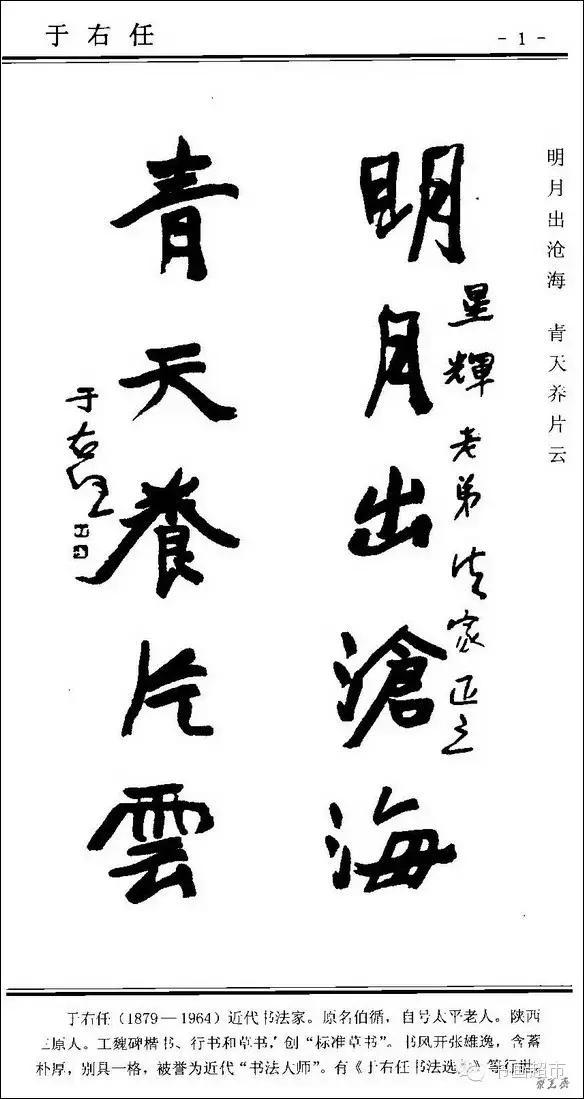 于右任
- 1 -
明月出沧海 青天养片云
明月出滄海
星輝老弟法家正之
青天養片雲
于右任
于右任(1879—1964)近代书法家。原名伯循,自号太平老人。陕西
三原人。工魏碑楷书、行书和草书,创“标准草书”。书风开张雄逸,含蓄
朴厚,别具一格,被誉为近代“书法大师”。有《于右任书法选》等行世。
书画超市